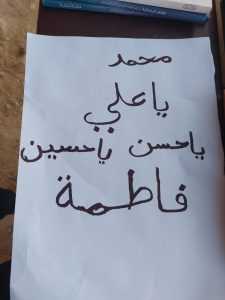 محمد
ياعلي
ياحسن ياحسين
فاطمة